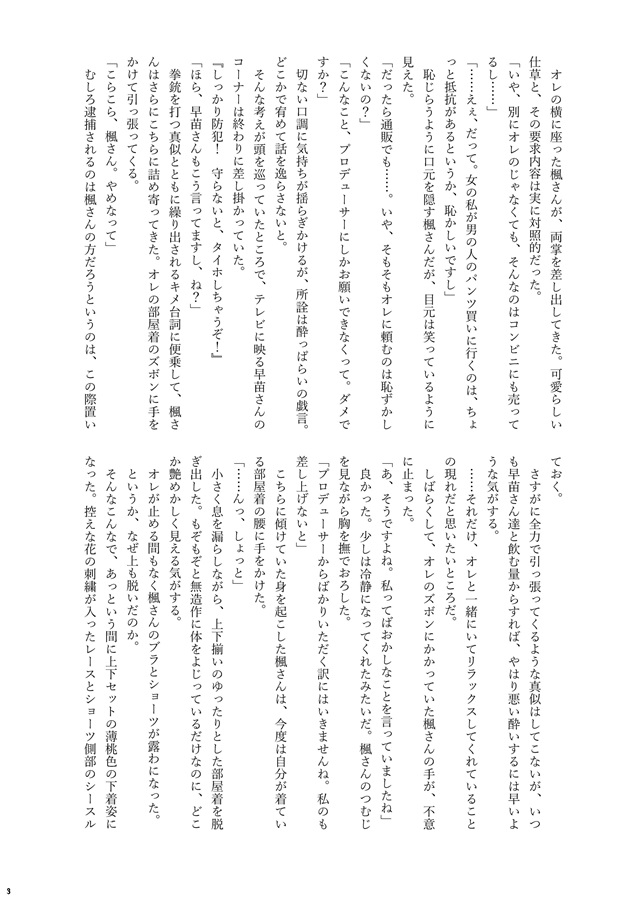 オレの横に座った楓さんが、両掌を差し出してきた。可愛らしい
仕草と、その要求内容は実に対照的だった。
「いや、別にオレのじゃなくても、そんなのはコンビニにも売って
るし……」
「……えぇ、だって。女の私が男の人のパンツ買いに行くのは、ちょ
っと抵抗があるというか、恥かしいですし」
恥じらうように口元を隠す楓さんだが、目元は笑っているように
見えた。
「だったら通販でも……。いや、そもそもオレに頼むのは恥ずかし
くないの？」
「こんなこと、プロデューサーにしかお願いできなくって。ダメで
すか？」
切ない口調に気持ちが揺らぎかけるが、所詮は酔っぱらいの戯言。
どこかで宥めて話を逸らさないと。
そんな考えが頭を巡っていたところで、テレビに映る早苗さんの
コーナーは終わりに差し掛かっていた。
『しっかり防犯！　守らないと、タイホしちゃうぞ！』
「ほら、早苗さんもこう言ってますし、ね？」
拳銃を打つ真似とともに繰り出されるキメ台詞に便乗して、楓さ
んはさらにこちらに詰め寄ってきた。オレの部屋着のズボンに手を
かけて引っ張ってくる。
「こらこら、楓さん。やめなって」
むしろ逮捕されるのは楓さんの方だろうというのは、この際置い
ておく。
さすがに全力で引っ張ってくるような真似はしてこないが、いつ
も早苗さん達と飲む量からすれば、やはり悪い酔いするには早いよ
うな気がする。
……それだけ、オレと一緒にいてリラックスしてくれていること
の現れだと思いたいところだ。
しばらくして、オレのズボンにかかっていた楓さんの手が、不意
に止まった。
「あ、そうですよね。私ってばおかしなことを言っていましたね」
良かった。少しは冷静になってくれたみたいだ。楓さんのつむじ
を見ながら胸を撫でおろした。
「プロデューサーからばかりいただく訳にはいきませんね。私のも
差し上げないと」
こちらに傾けていた身を起こした楓さんは、今度は自分が着てい
る部屋着の腰に手をかけた。
「……んっ、しょっと」
小さく息を漏らしながら、上下揃いのゆったりとした部屋着を脱
ぎ出した。もぞもぞと無造作に体をよじっているだけなのに、どこ
か艶めかしく見える気がする。
オレが止める間もなく楓さんのブラとショーツが露わになった。
というか、なぜ上も脱いだのか。
そんなこんなで、あっという間に上下セットの薄桃色の下着姿に
なった。控えな花の刺繍が入ったレースとショーツ側部のシースル
3